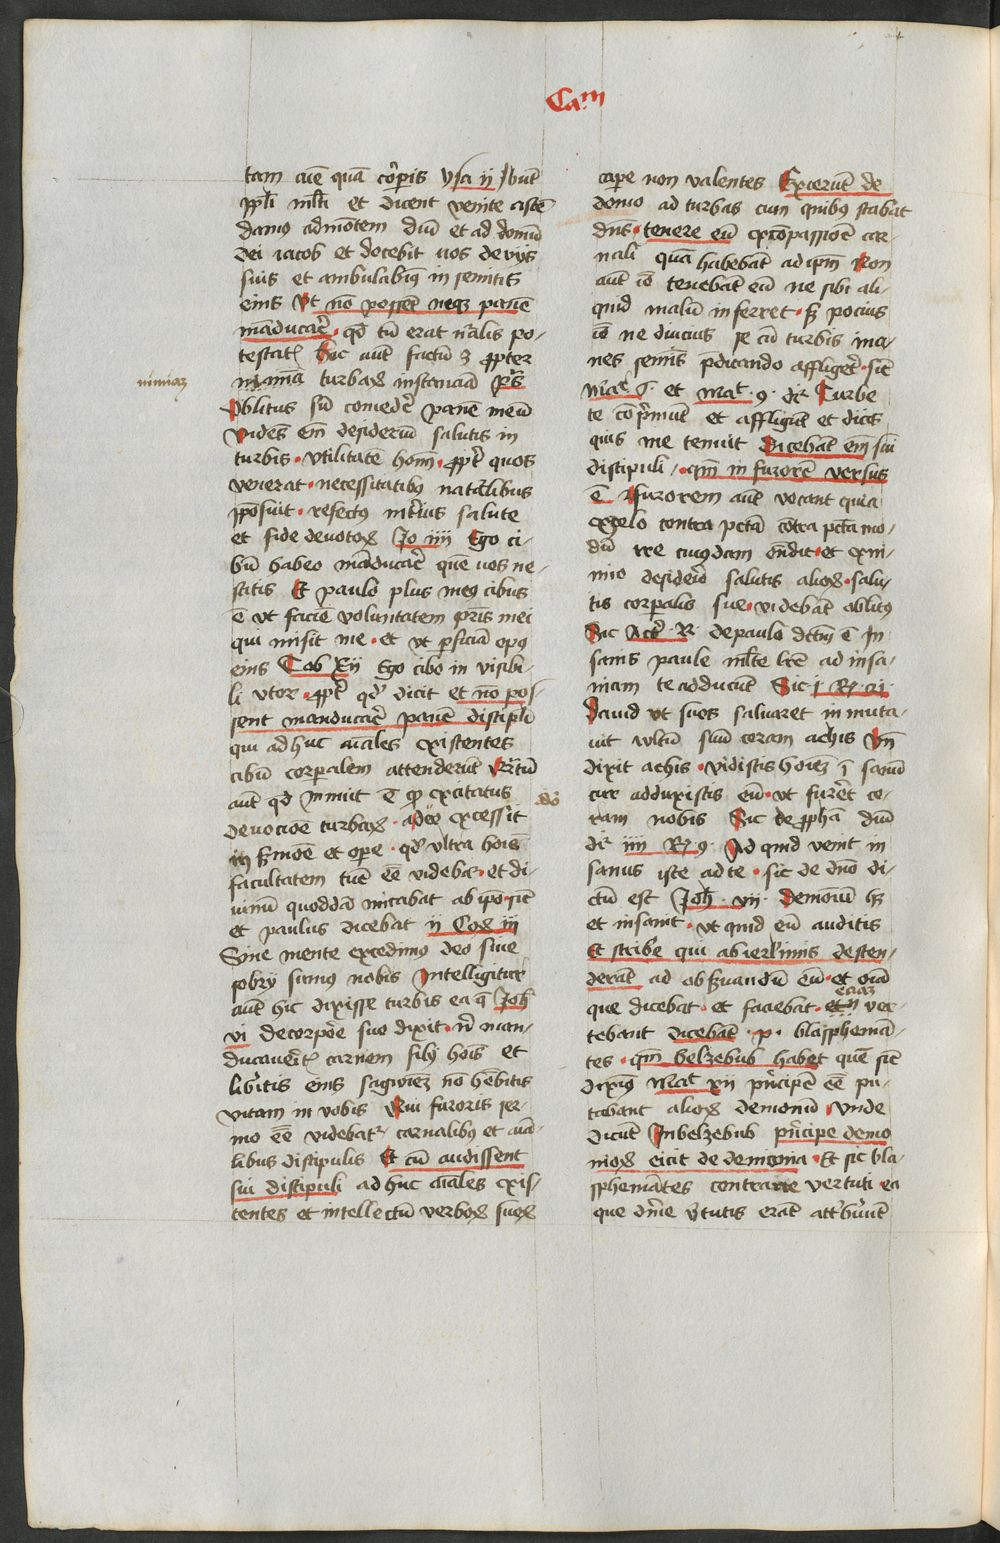 Ca.m
tam aīe quā cor̄pis ysa ij Ibūt
ppl̄i ml̄ti et dicent venite ascē
damꝰ ad mōtem dn̄i et ad domū
dei iacob et docebit nos de vijs
suis et ambulabimꝰ in semitis
eius Vt nō possēt neqꝫ panē
māducar̄e · qd̄ tn̄ erat n̄alis po-
testatꝭ hic aut̄ factū ꝫ ꝓpter
nimiā turbaꝝ instanciā pˢ̄
Oblitus sū comeder̄ panē meū
videns em̄ desideriū salutis in
turbis · vtilitatē hom̄ · ꝓpt̄ quos
venerat · necessitatibꝰ natͣlibus
p̄posuit · refectꝰ int̄ius salute
et fide deuotoꝝ Jo iiii Ego ci-
bū habeo māducar̄e quē uos ne-
scitis Et paulo plus meꝰ cibus
ē vt faciā voluntatem pr̄is mei
qui misit me · et vt ꝑficiā opꝰ
eius Tob xij Ego cibo in visibi-
li vtor · ꝓpt̄ qd̄ dicit et nō pos-
sent manducar̄e panē discipl̄i
qui ad huc aīales existentes
cibū corꝑalem attenderūt
aut̄ qd̄ innuit ē ꝙ excitatus
deuocōe turbaꝝ · adeo excessit
in ẜmōe et oꝑe · qd̄ vltra hoīs
facultatem tūc eē videbatꝛ · et di-
uinū quoddā micabat ab ip̄o · sic̄
et paulus dicebat ij Coꝝ iij
Siue mente excedimꝰ deo siue
sobrij sumus nobis Intelligitur
aut̄ hic dixisse turbis ea q̄ Joh̄
vi de corpore suo dixit · nͥ man-
ducauer̄itꝭ carnem filij hoīs et
biber̄itis eius sāgwinē nō hēbitis
vitam in vobis Qui furoris ser-
mo eē videbatꝛ · carnalibus et aīa-
libus discipulis Et cū audissent
sui discipuli ad huc aīales exis-
tentes et intellectū verboꝝ suoꝝ
nimiaꝫ
cape non valentes Exierūt de
domo ad turbas cum quibꝰ stabat
dn̄s · tenere eū ex cōpassiōe car-
nali quā habebāt ad ip̄m Non
aut̄ iō tenebāt eū ne sibi ali-
quid malū inferret · sꝫ pocius
iō ne diucius se cū turbis ma-
nes semīs p̄dicando affliger̄et · sic̄
Mar̄ 5 · et Mat̄ · 9 · dr̄ Turbe
te cōp̄munt et affligūt et dicis
quis me tetigit Dicebāt em̄ sui
discipuli · qm̄ in furorē versus
ē Furorem aut̄ vocant quia
ex zelo contra pctā cōtra pctā mo-
dū ire cuiqdam on̄dit · et exi-
mio desiderio salutis alioꝝ · salu-
tis corꝑalis sue · videbāt oblitꝰ
Sic Act̄ · de paulo dc̄tm ē In
sanis paule ml̄te lr̄e ad insa-
niam te adducūt Sic · j Rꝫ · xxj ·
Dauid vt suos saluaret in muta-
uit wltū suū coram achis Vn̄
dixit achis · vidistis hoīeꝫ ī sanū
cur adduxistis eū · vt furer̄et co-
ram nobis Sic de ꝓphā dn̄i
dr̄ iiii Rꝫ 9 · Ad quid venit in
sanus iste ad te · sic de dn̄o di-
ctū est Joh̄ · vij · Demoniū hꝫ
et insanit · vt quid eū auditis
Et scribe qui ab ierl̄imis descen-
derāt ad obẜuandū eū · et oīa
que dicebat · et faciebat · et n̄ ver-
tebant dicebāt · p · blasphemā-
tes · qm̄ belzebub habet quē sic̄
diximꝰ Mat̄ xij pr̄incipē eē pu-
tabant alioꝝ demoniū Vnde
dicūt In belzebub pr̄incipe demo
nioꝝ eicit de demonia · Et sic bla-
sphemātes contrarie vertuti ea
que dn̄ie v̄tutis erāt att̄buūt